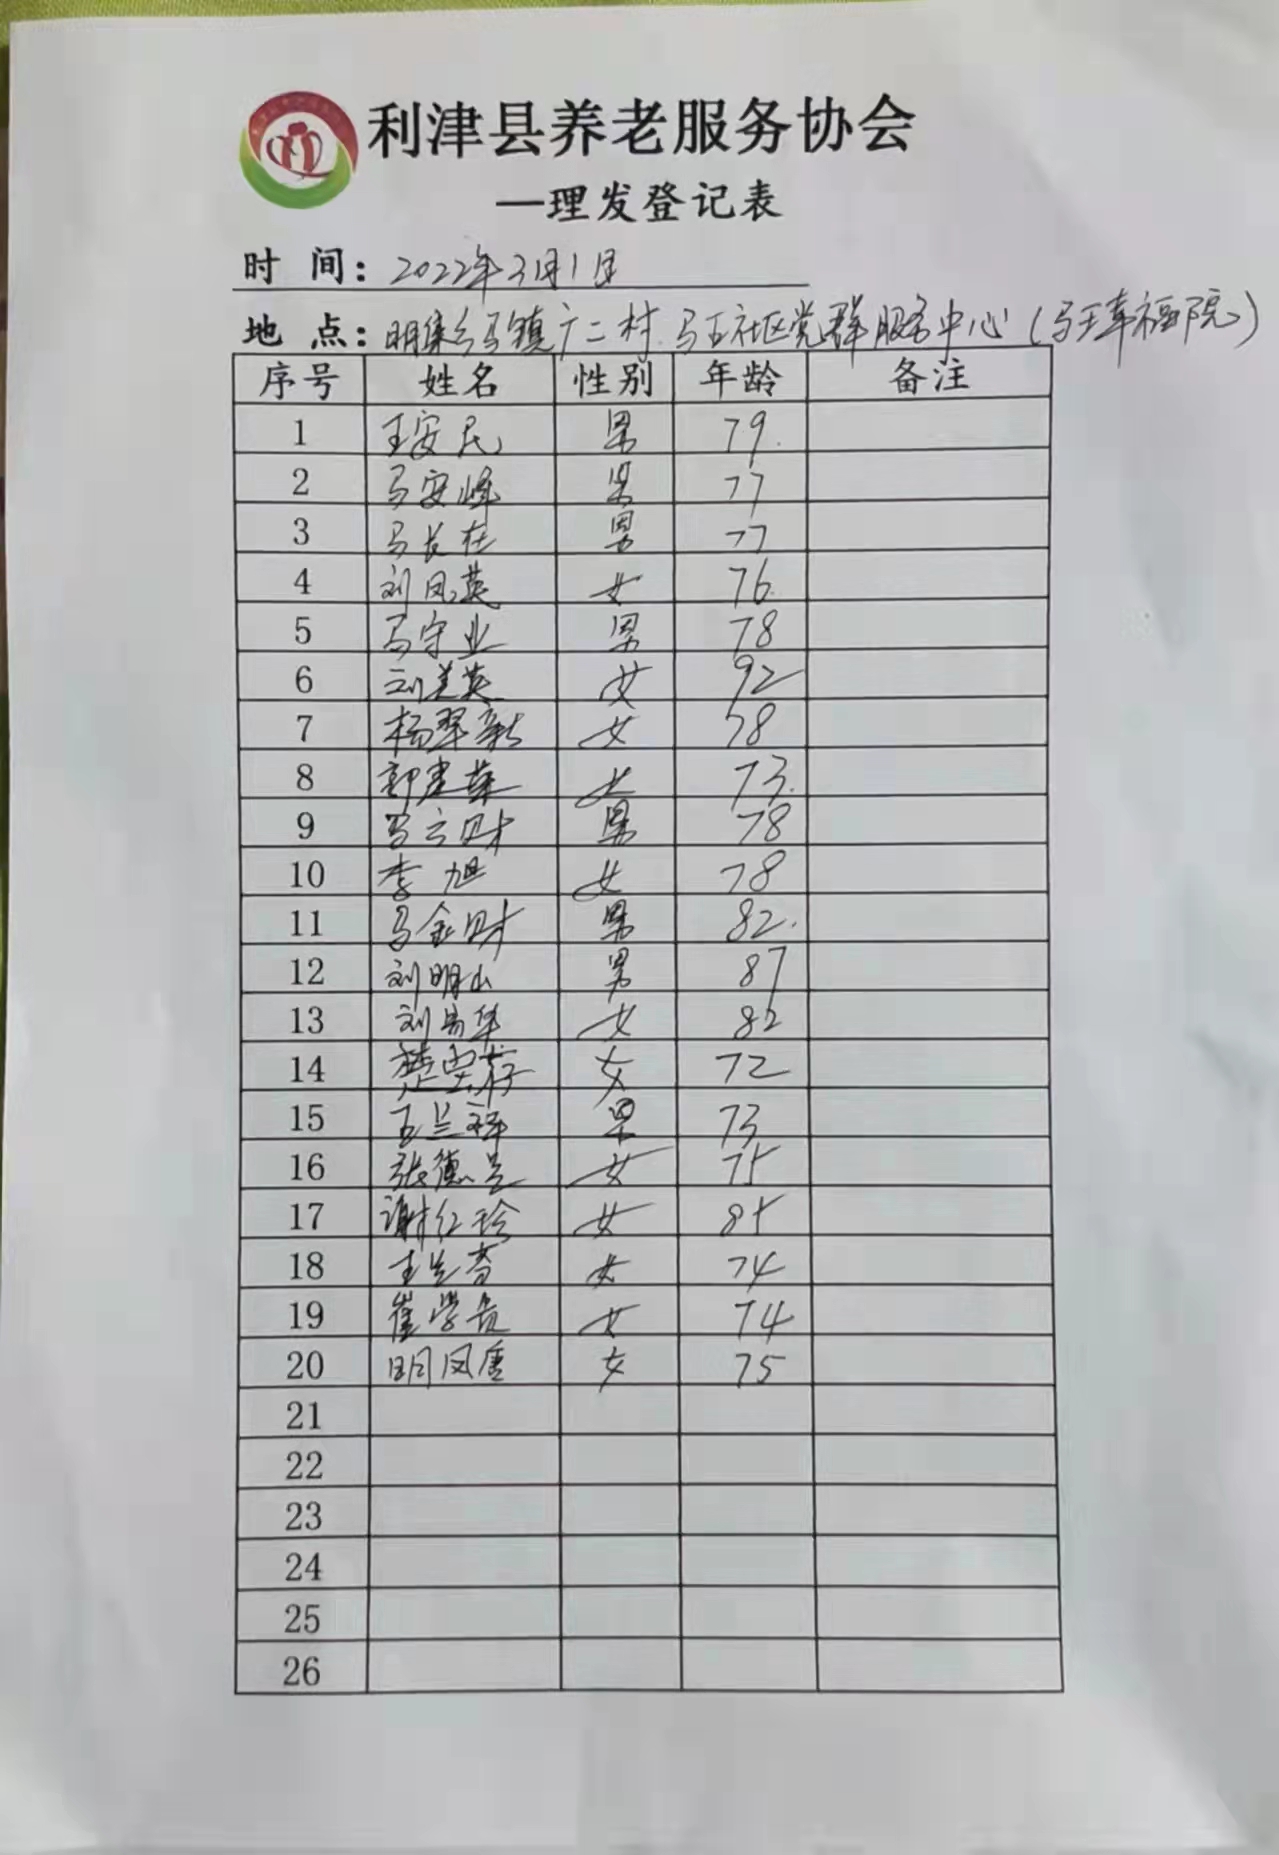 利津县养老服务协会
—理发登记表
时 间：2022年3月1日
地 点：明集乡马镇广二村 马王社区党群服务中心（马王幸福院）
序号 姓名 性别 年龄 备注
1 王安民 男 79
2 马安峰 男 77
3 马长在 男 77
4 刘凤英 女 76
5 马守业 男 78
6 刘美英 女 92
7 杨翠新 女 78
8 郭建华 女 73
9 马云财 男 78
10 李旭 女 78
11 马金财 男 82
12 刘明山 男 87
13 刘易华 女 82
14 楚 女 72
15 王兰祥 男 73
16 张德兰 女 75
17 谢红玲 女 85
18 王兰香 女 74
19 崔学贞 女 74
20 明凤 女 75
21
22
23
24
25
26